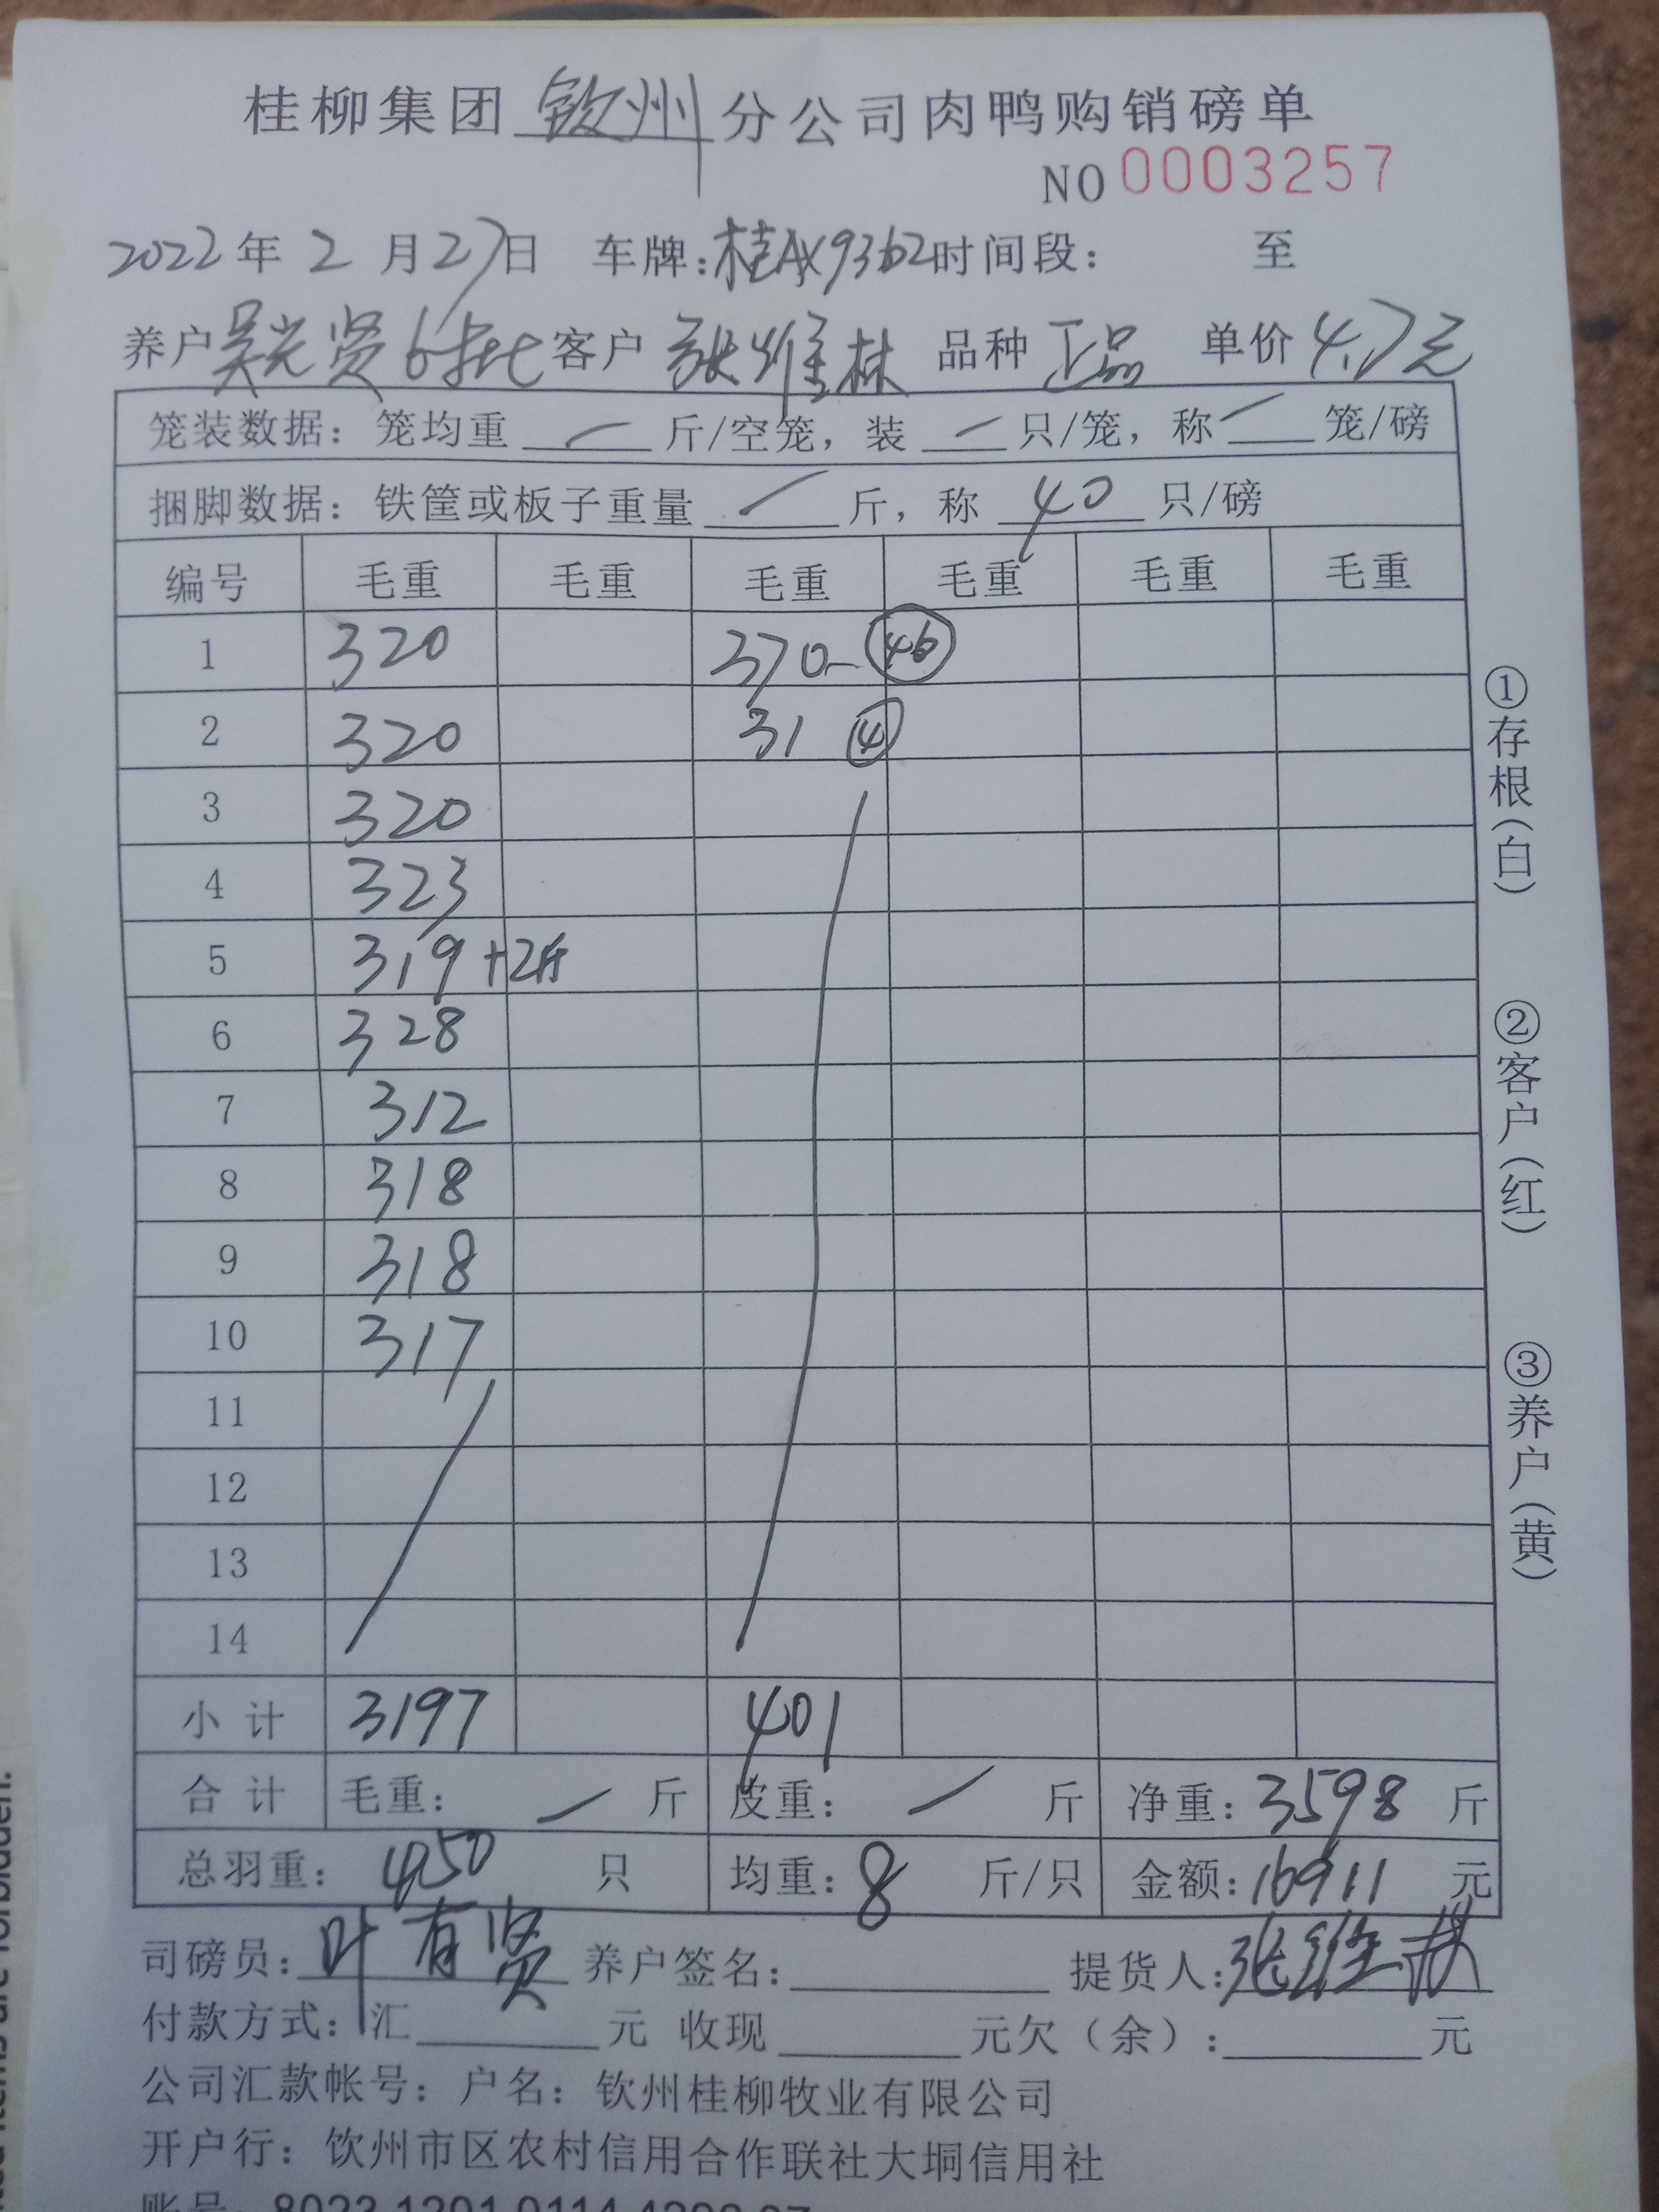 桂柳集团 钦州 分公司肉鸭购销磅单
NO 0003257
2022年 2月27日 车牌:桂AX9362时间段: 至
养户 吴光贤 6批 客户 张维林 品种 正品 单价 4.7元
笼装数据: 笼均重 — 斤/空笼, 装 — 只/笼, 称 — 笼/磅
捆脚数据: 铁筐或板子重量 — 斤, 称 40 只/磅
编号 毛重 毛重 毛重 毛重 毛重 毛重
1 320 370- 46
2 320 31 4
3 320
4 323
5 319 +2斤
6 328
7 312
8 318
9 318
10 317
11
12
13
14
小计 3197 401
合计 毛重: — 斤 皮重: — 斤 净重: 3598 斤
总羽重: 450 只 均重: 8 斤/只 金额: 16911 元
司磅员: 叶有贤 养户签名: 提货人: 张维林
付款方式: 汇 元 收现 元欠(余): 元
公司汇款帐号: 户名: 钦州桂柳牧业有限公司
开户行: 钦州市区农村信用合作联社大垌信用社
①存根(白)
②客户(红)
③养户(黄)